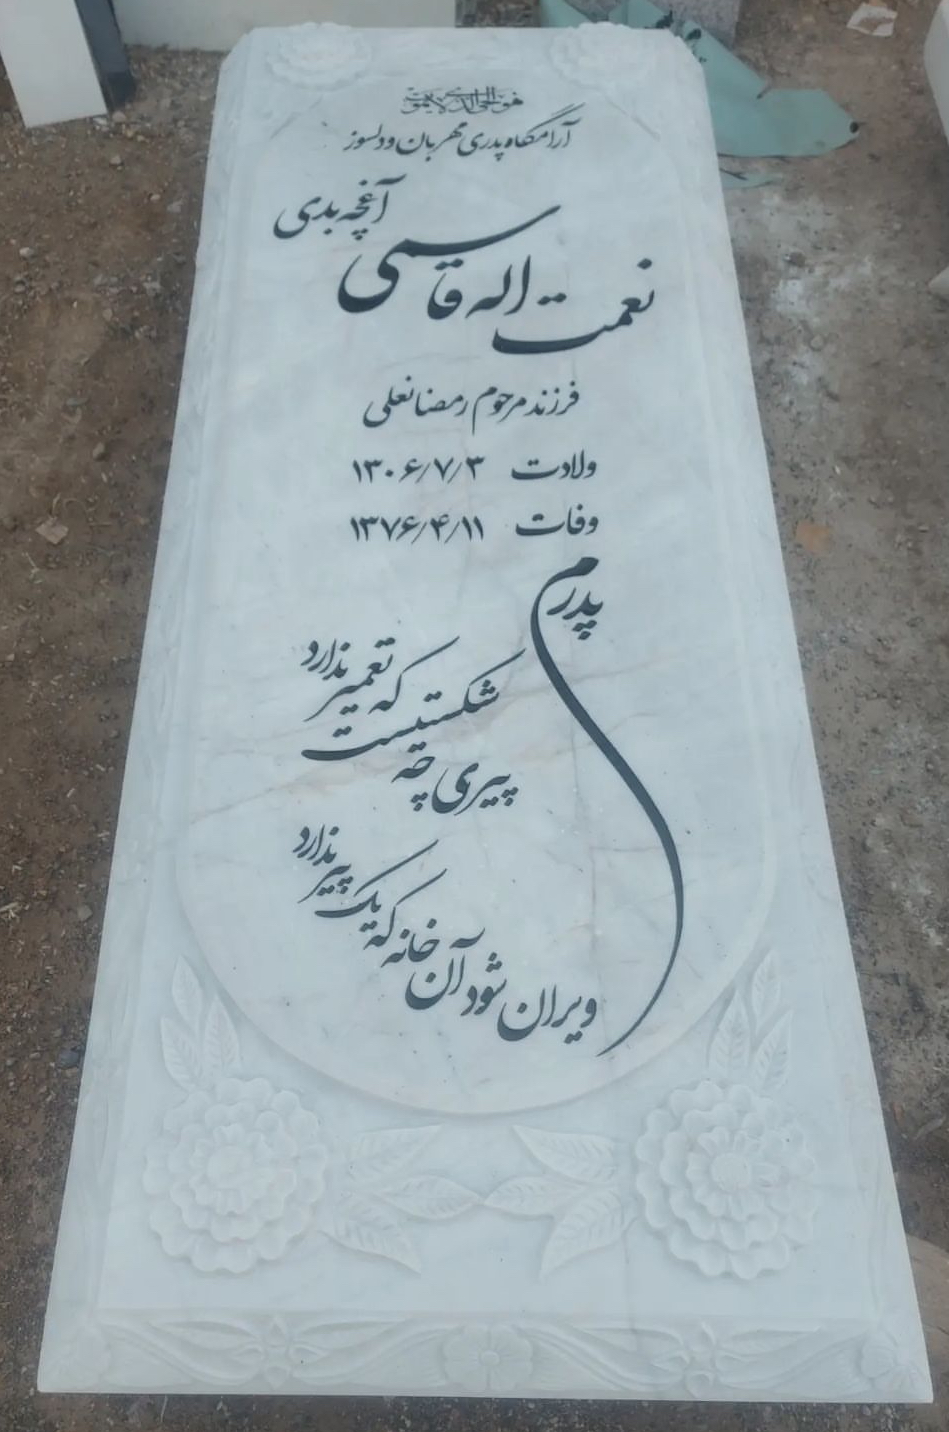 هو الحی الذی لا یموت
آرامگاه پدری مهربان و دلسوز
نعمت اله قاسمی آغچه بدی
فرزند مرحوم رمضانعلی
ولادت ۱۳۰۶/۷/۳
وفات ۱۳۷۶/۴/۱۱
پدرم
پیری چه شکستیست که تعمیر ندارد
ویران شود آن خانه که یک پیر ندارد